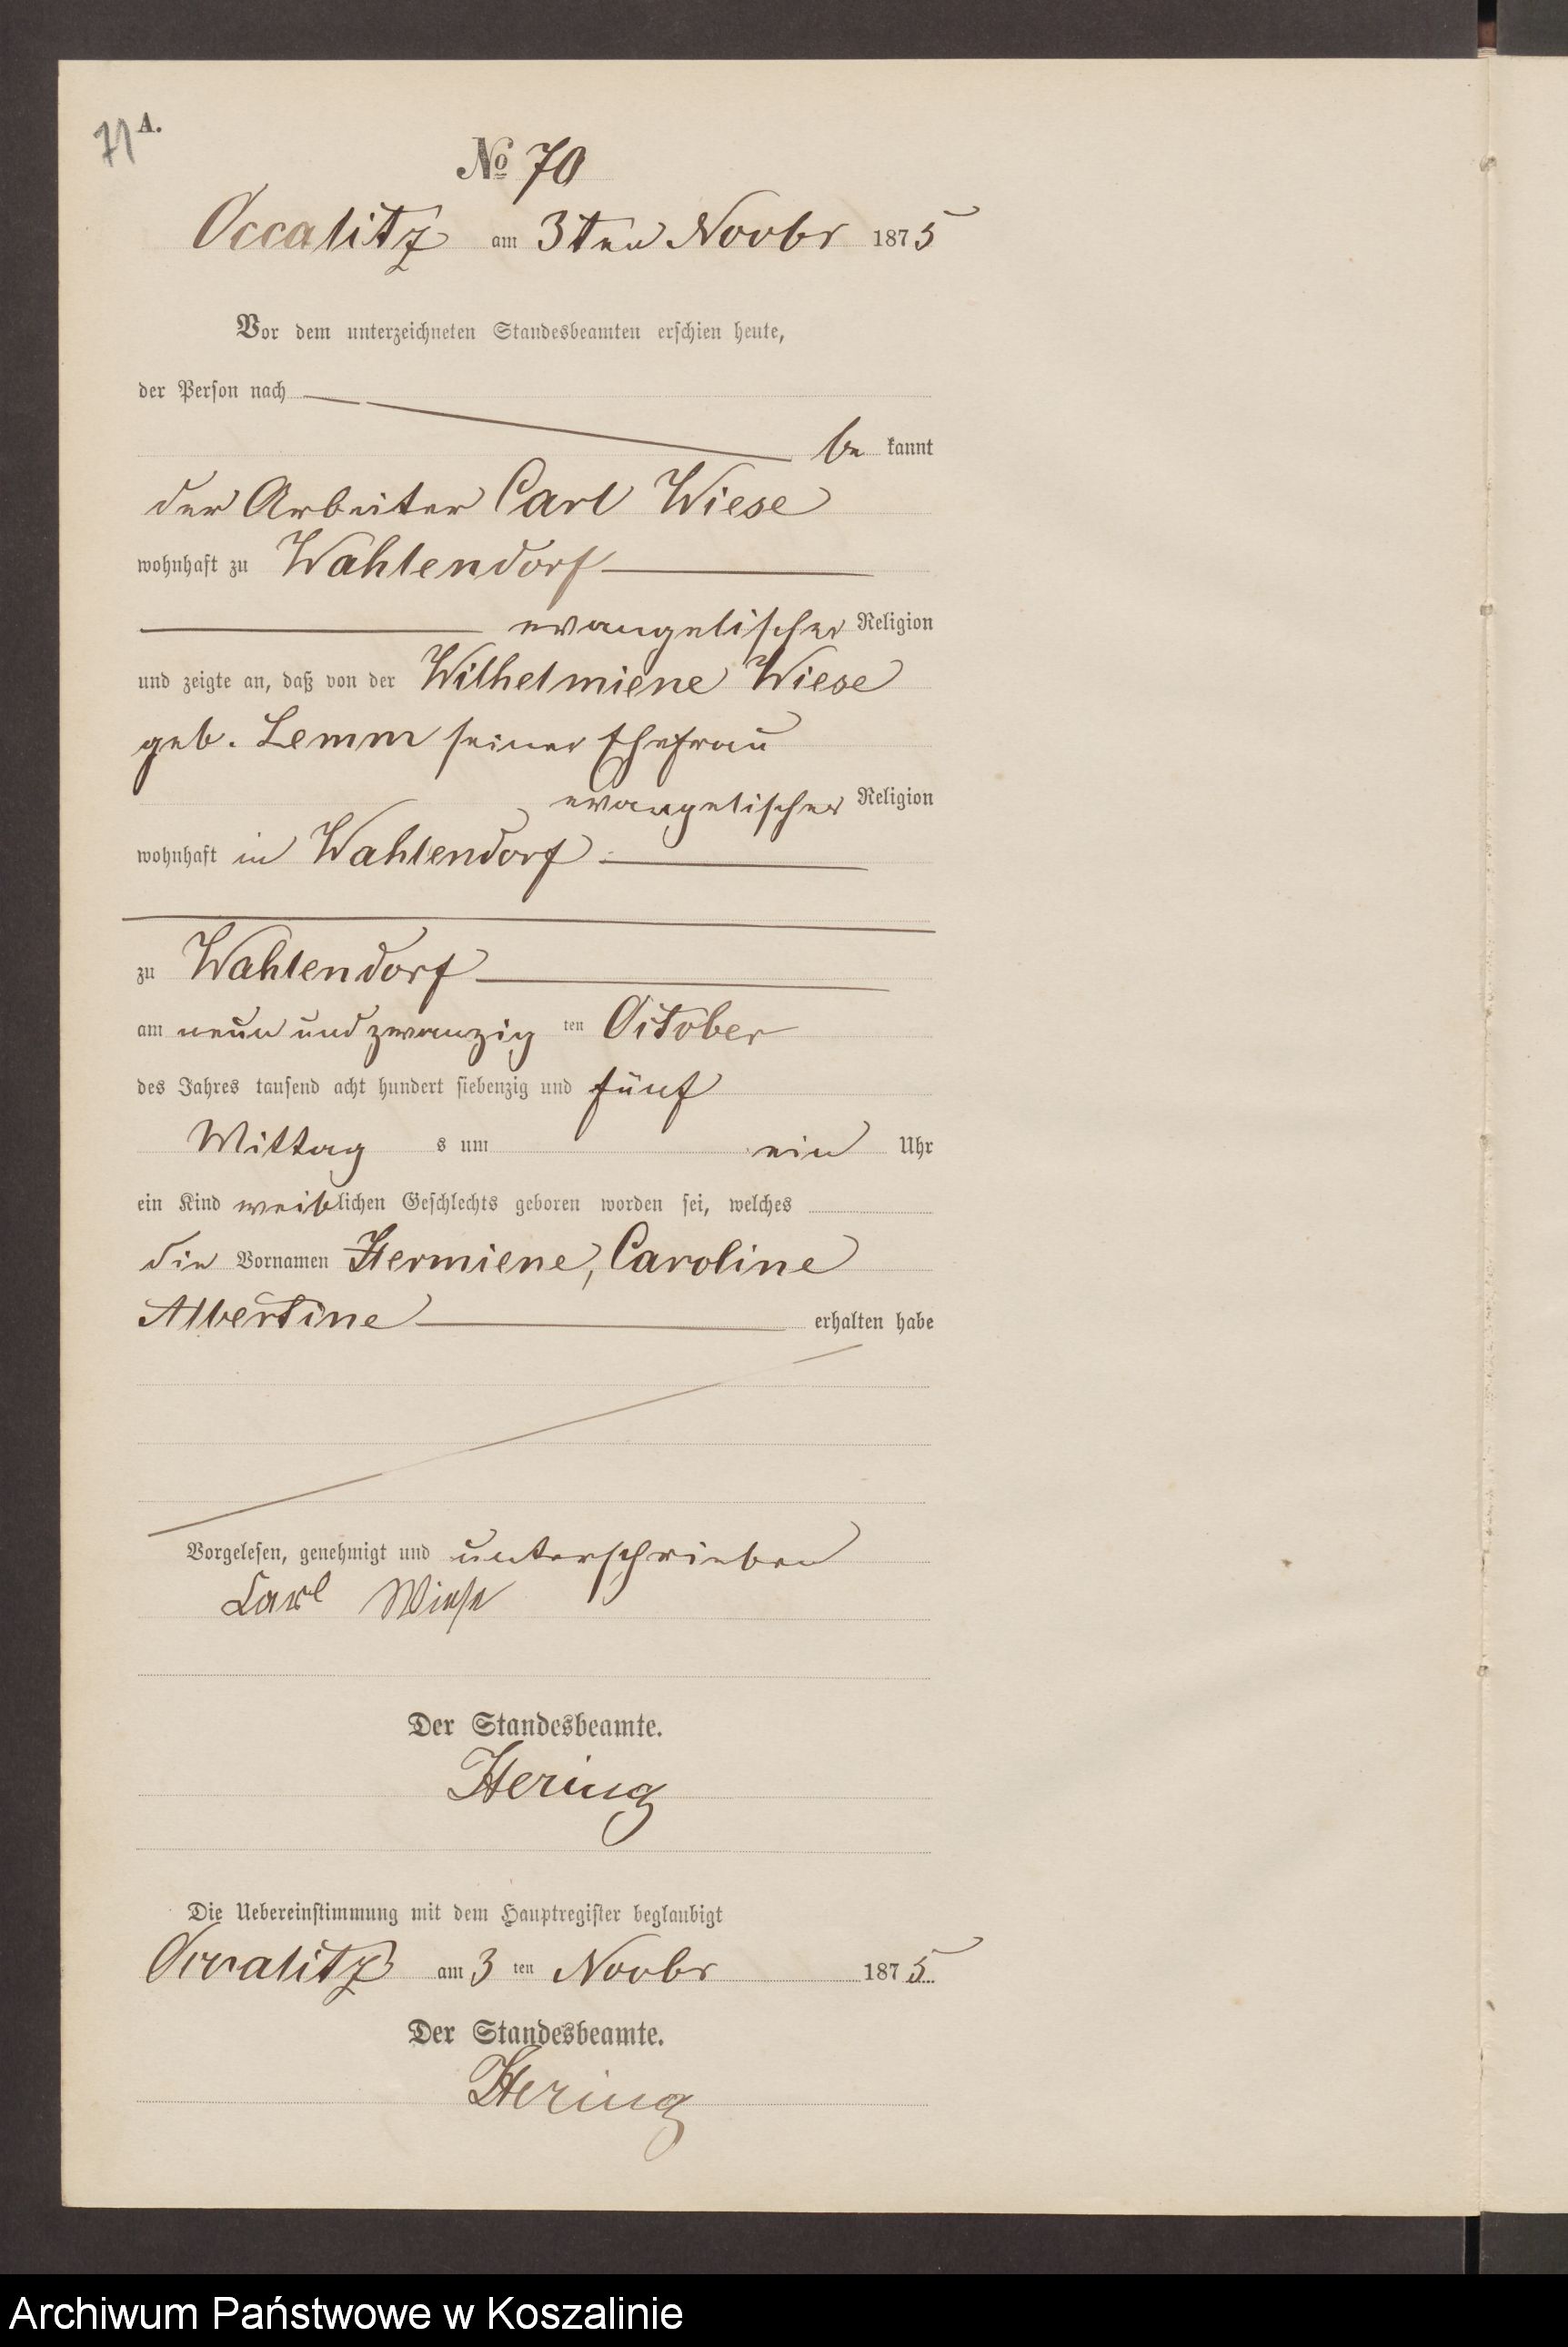 71 A.
No 70
Occalitz am 3ten Novbr 1875
Vor dem unterzeichneten Standesbeamten erschien heute,
der Person nach
be kannt
der Arbeiter Carl Wiese
wohnhaft zu Wahlendorf
evangelischer Religion
und zeigte an, daß von der Wilhelmiene Wiese
geb. Lemm seiner Ehefrau
evangelischer Religion
wohnhaft in Wahlendorf
zu Wahlendorf
am neun und zwanzig ten October
des Jahres tausend acht hundert siebenzig und fünf
Mittag s um ein Uhr
ein Kind weiblichen Geschlechts geboren worden sei, welches
die Vornamen Hermiene, Caroline
Albertine erhalten habe
Vorgelesen, genehmigt und unterschrieben
Carl Wiese
Der Standesbeamte.
Hering
Die Uebereinstimmung mit dem Hauptregister beglaubigt
Occalitz am 3 ten Novbr 1875
Der Standesbeamte.
Hering
Archiwum Państwowe w Koszalinie